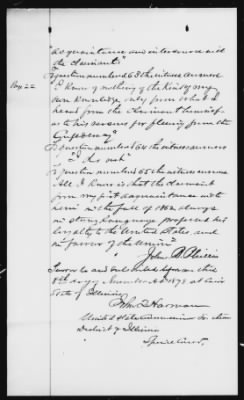 acquaintance and intercourse with
the claimant"
To question numbered 63 the witness answered
Pag 22
"I know of nothing of the kind of my
own knowledge only from what I
heard from the claimant himself
as to his reasons for fleeing from the
Confederacy"
To question numbered 64 the witness answers
"I do not"
To question numbered 65 the witness answers
All I know is that the claimant
from my first acquaintance with
him in the fall of 1862 always
in strong language professed his
loyalty to the United States, and
in favor of the Union"
John B.
Sworn to and subscribed before me this
8th day of November 1873 at
State of Illinois
John Harmon
United States Commissioner for
District of Illinois
Special Com'r.